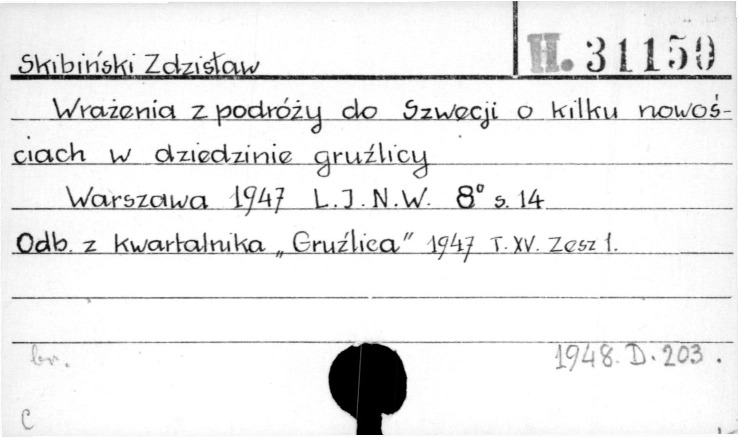 H. 31150
Skibiński Zdzisław
Wrażenia z podróży do Szwecji o kilku nowoś-
ciach w dziedzinie gruźlicy
Warszawa 1947 L.J.N.W. 8° s. 14
Odb. z kwartalnika „Gruźlica" 1947 T. XV. Zesz 1.
br. 1948. D. 203.
C